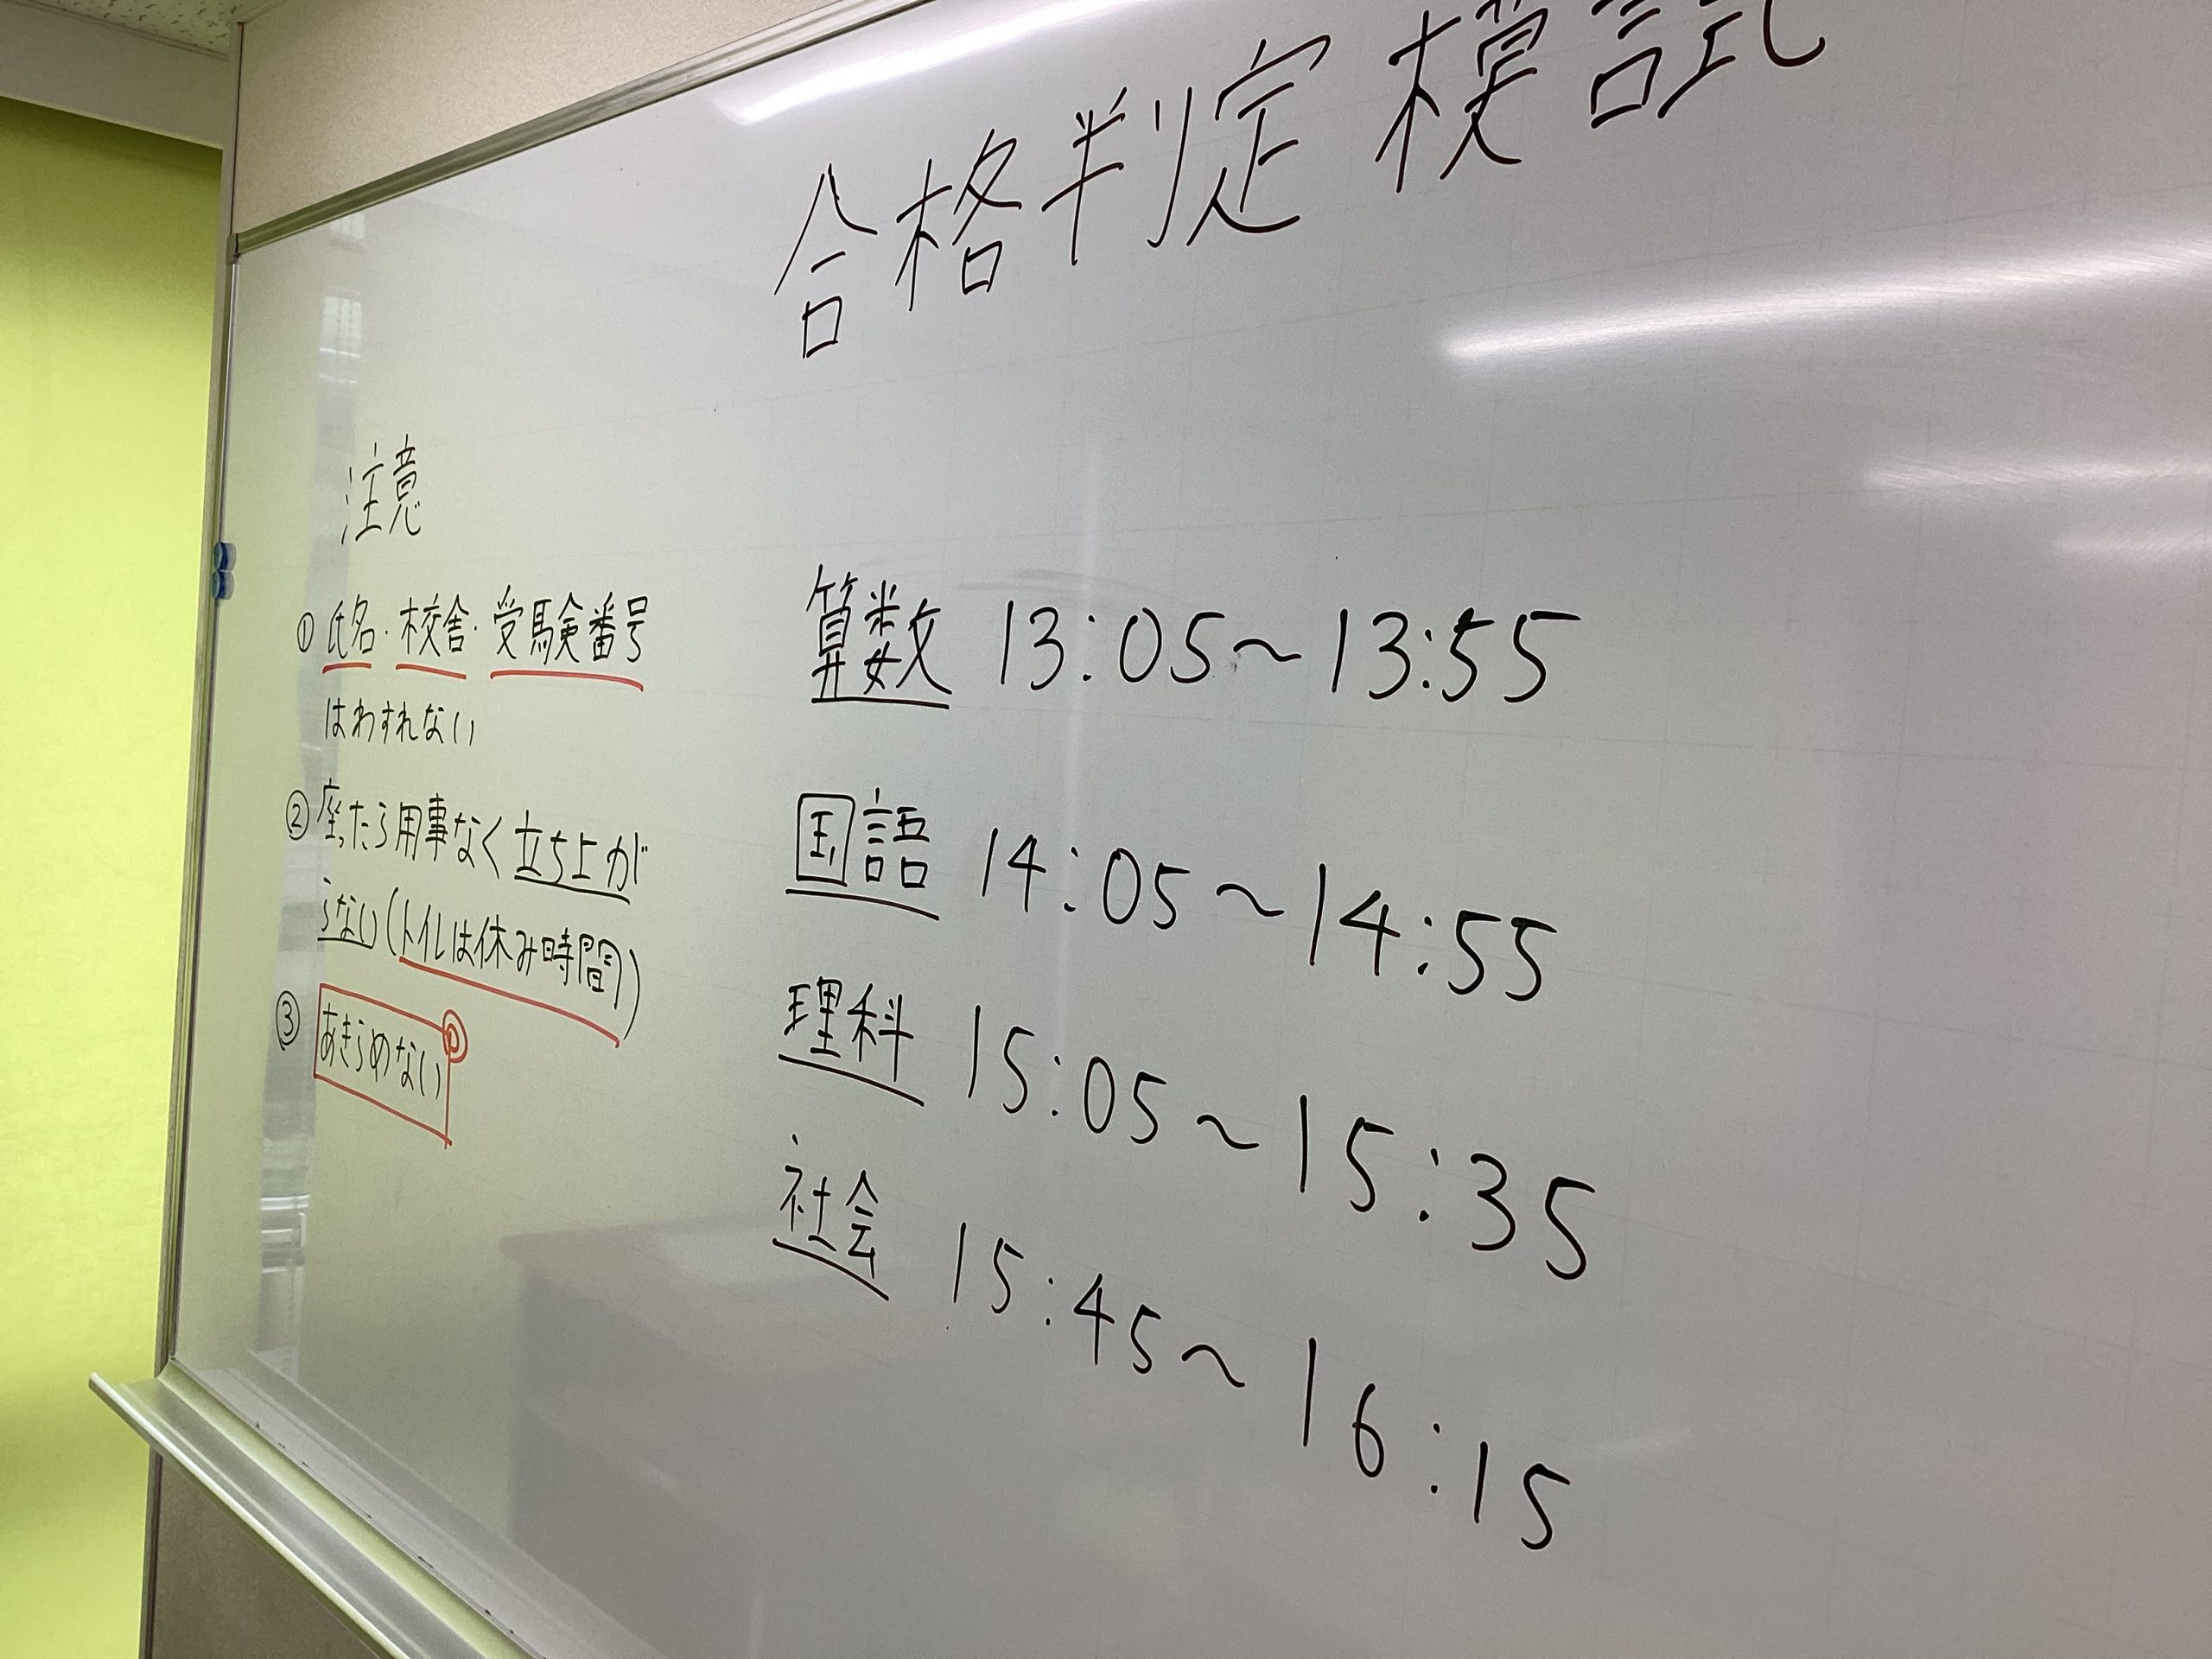 合格判定模試
注意
① 氏名・校舎・受験番号
はわすれない
② 座ったら用事なく立ち上が
らない(トイレは休み時間)
③ あきらめない
算数 13:05~13:55
国語 14:05~14:55
理科 15:05~15:35
社会 15:45~16:15